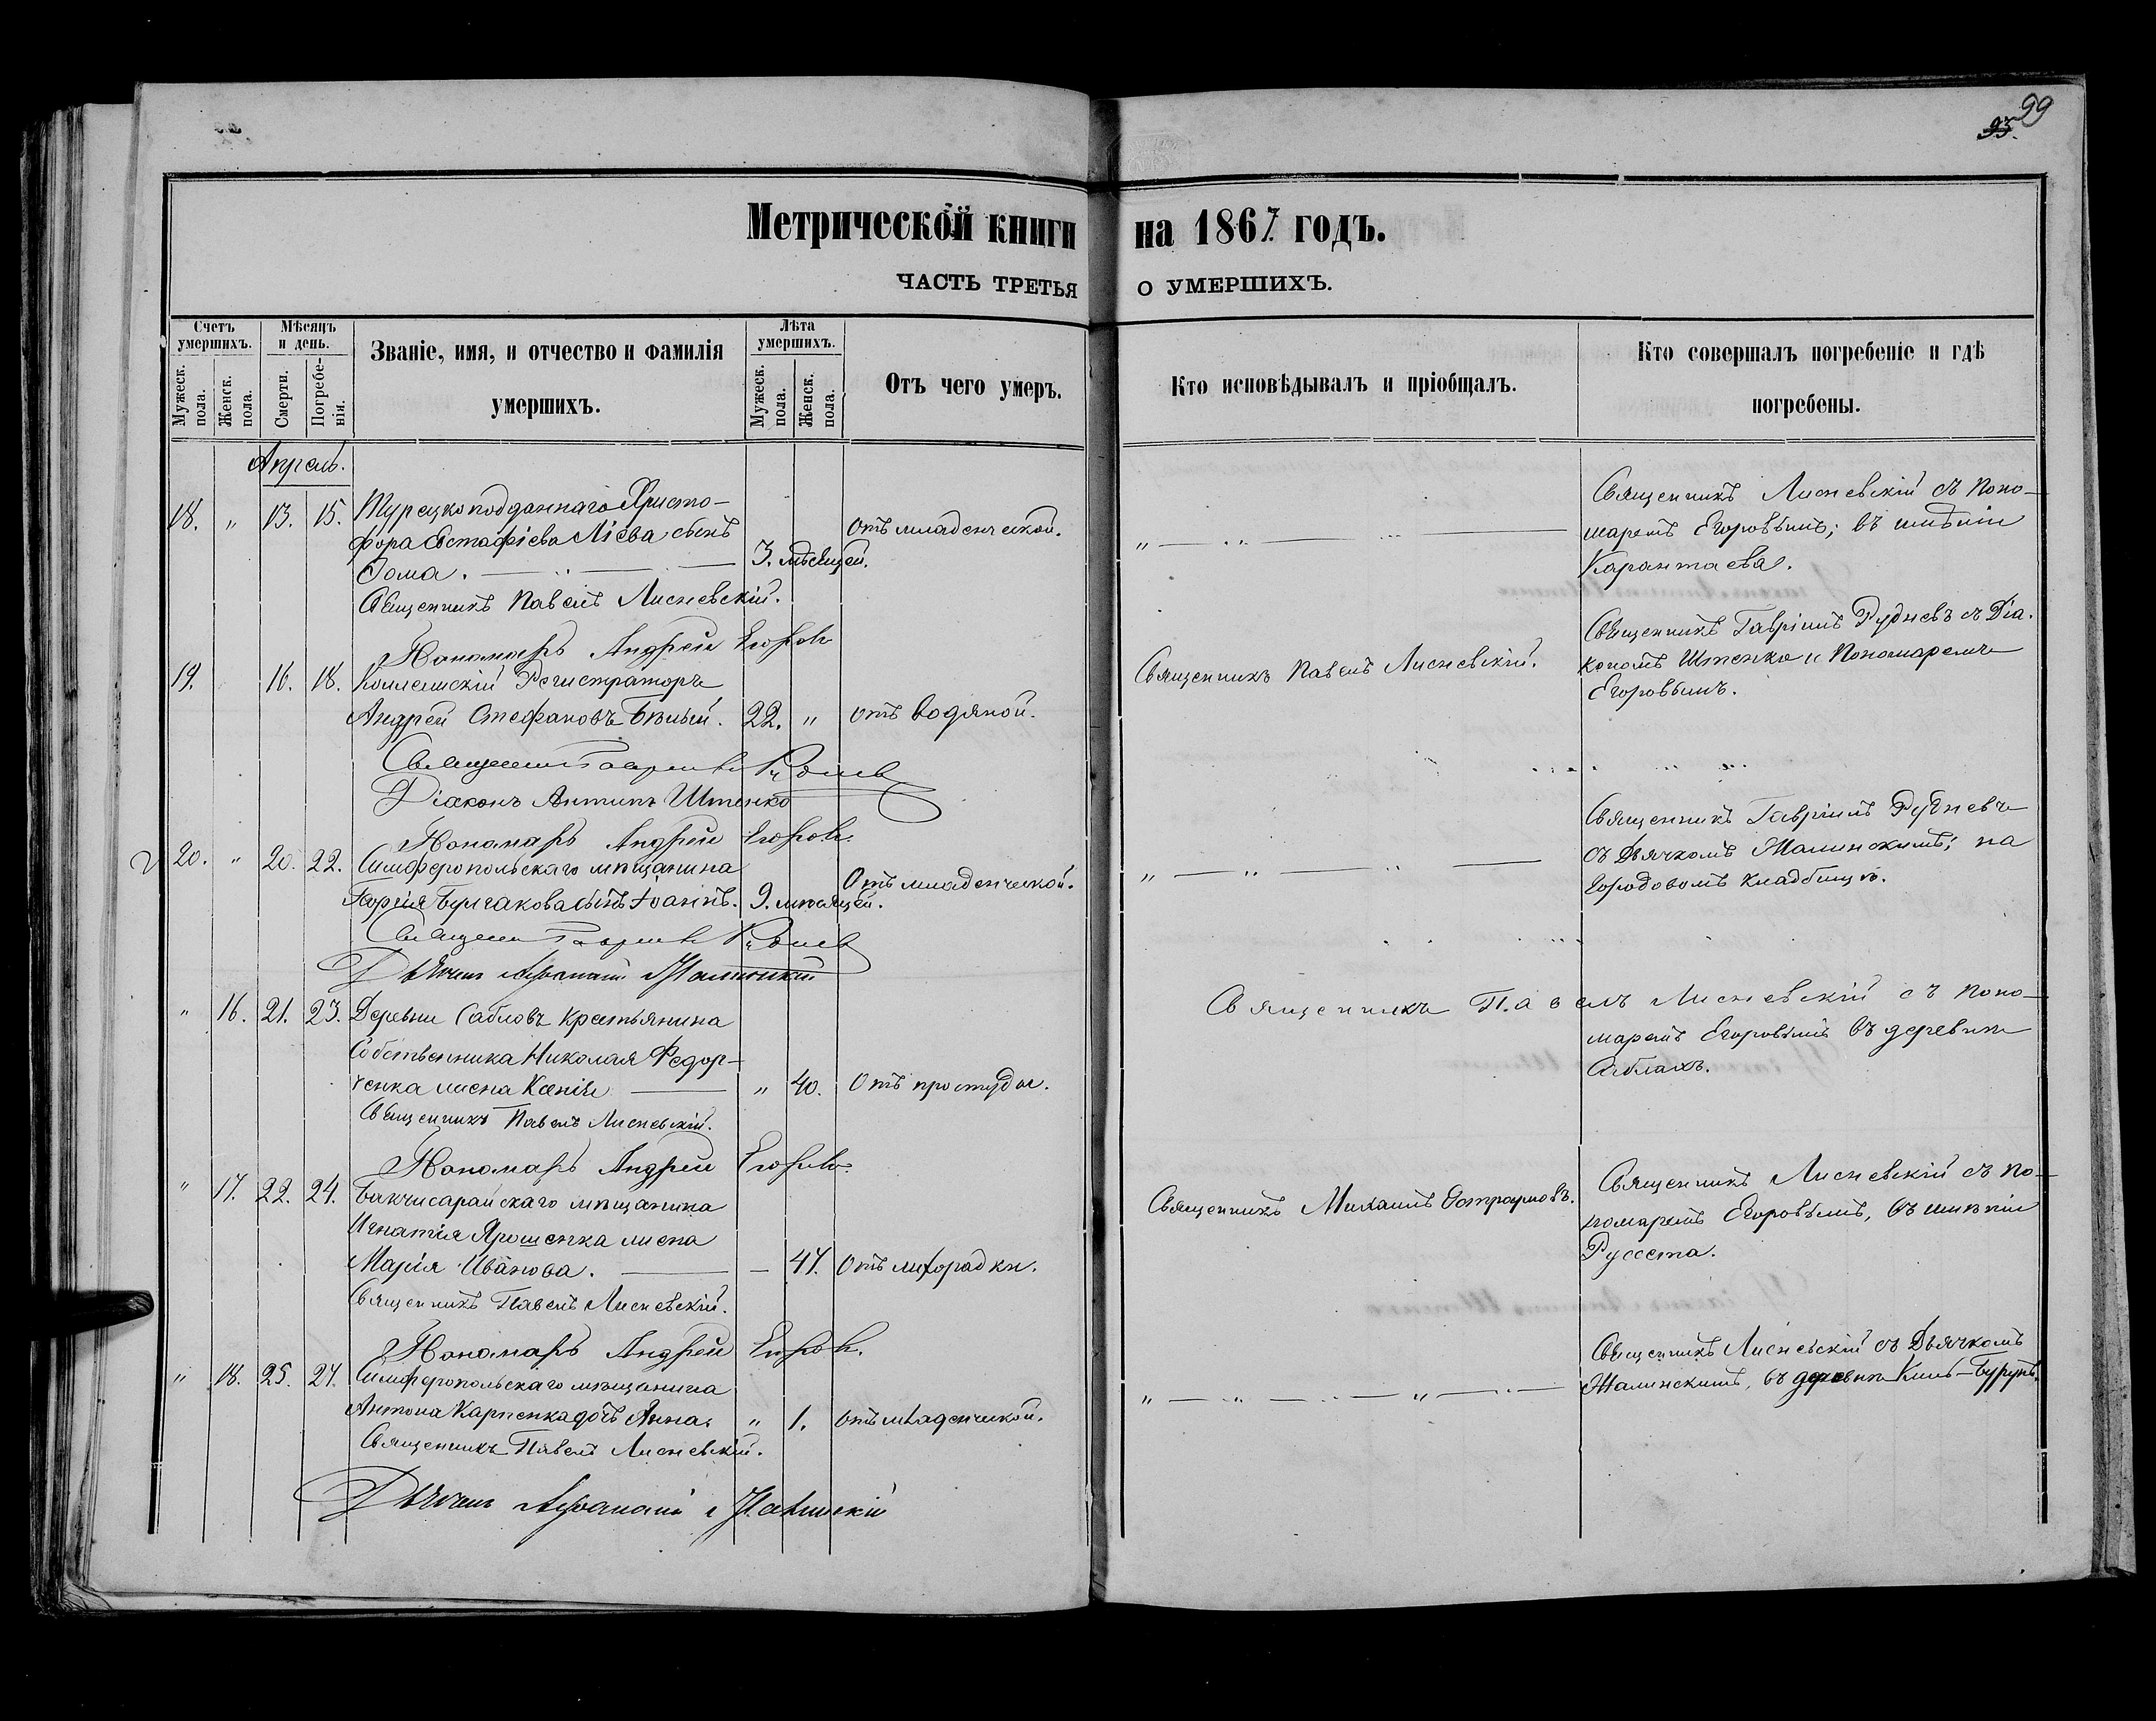 99
93.
Метрической книги на 1867 годъ.
ЧАСТЬ ТРЕТЬЯ О УМЕРШИХЪ.
Счетъ умершихъ.
Мужеск. пола.
Женск. пола.
Мѣсяцъ и день.
Смерти.
Погребенія.
Званіе, имя, и отчество и фамилія
умершихъ.
Лѣта умершихъ.
Мужеск. пола.
Женск. пола.
Отъ чего умеръ.
Кто исповѣдывалъ и пріобщалъ.
Кто совершалъ погребеніе и гдѣ
погребены.
Апрель.
18. " 13. 15. Турецкоподданнаго Христо-
фора Евстафіева сынъ
Ѳома. 3. мѣсяцей. Отъ младенческой.
Священникъ Лисневскій съ Поно-
маремъ Егоровымъ; въ имѣніи
Карантаева.
Священникъ Павелъ Лисневскій.
Пономарь Андрей Егоровъ
19. 16. 18. Коллежскій Регистраторъ
Андрей Стефановъ Бѣлый. 22. " отъ водяной.
Священникъ Павелъ Лисневскій.
Священникъ Гавріилъ Рудневъ съ Діа-
кономъ Штенко и Пономаремъ
Егоровымъ.
Священникъ Гавріилъ Рудневъ
Діаконъ Антипъ Штенко
Пономарь Андрей Егоровъ.
20. " 20. 22. Симферопольскаго мѣщанина
Булгакова сынъ Іоаннъ. 9. мѣсяцей. Отъ младенческой.
Священникъ Гавріилъ Рудневъ
съ Дьячкомъ Жалинскимъ; на
Городовомъ кладбищѣ.
Священникъ Гавріилъ Рудневъ
Дьячекъ Афанасій Жалинскій
" 16. 21. 23. Деревни Сабловъ крестьянина
Собственника Николая Федор-
ченка жена Ксенія " 40. Отъ простуды.
Священникъ Павелъ Лисневскій съ Поно-
маремъ Егоровымъ въ деревни
Саблахъ.
Священникъ Павелъ Лисневскій.
Пономарь Андрей Егоровъ.
" 17. 22. 24. Бакчисарайскаго мѣщанина
Игнатія Ярошенка жена
Марія Иванова. 47. Отъ лихорадки.
Священникъ Михаилъ Остроумовъ.
Священникъ Лисневскій съ По-
номаремъ Егоровымъ, въ имѣніи
Руссета.
Священникъ Павелъ Лисневскій.
Пономарь Андрей Егоровъ.
" 18. 25. 27. Симферопольскаго мѣщанина
Антона Карпенка дочь Анна. " 1. отъ младенческой.
Священникъ Лисневскій съ Дьячкомъ
Жалинскимъ, въ деревни Киль-Бурунъ.
Священникъ Павелъ Лисневскій.
Дьячекъ Афанасій Жалинскій